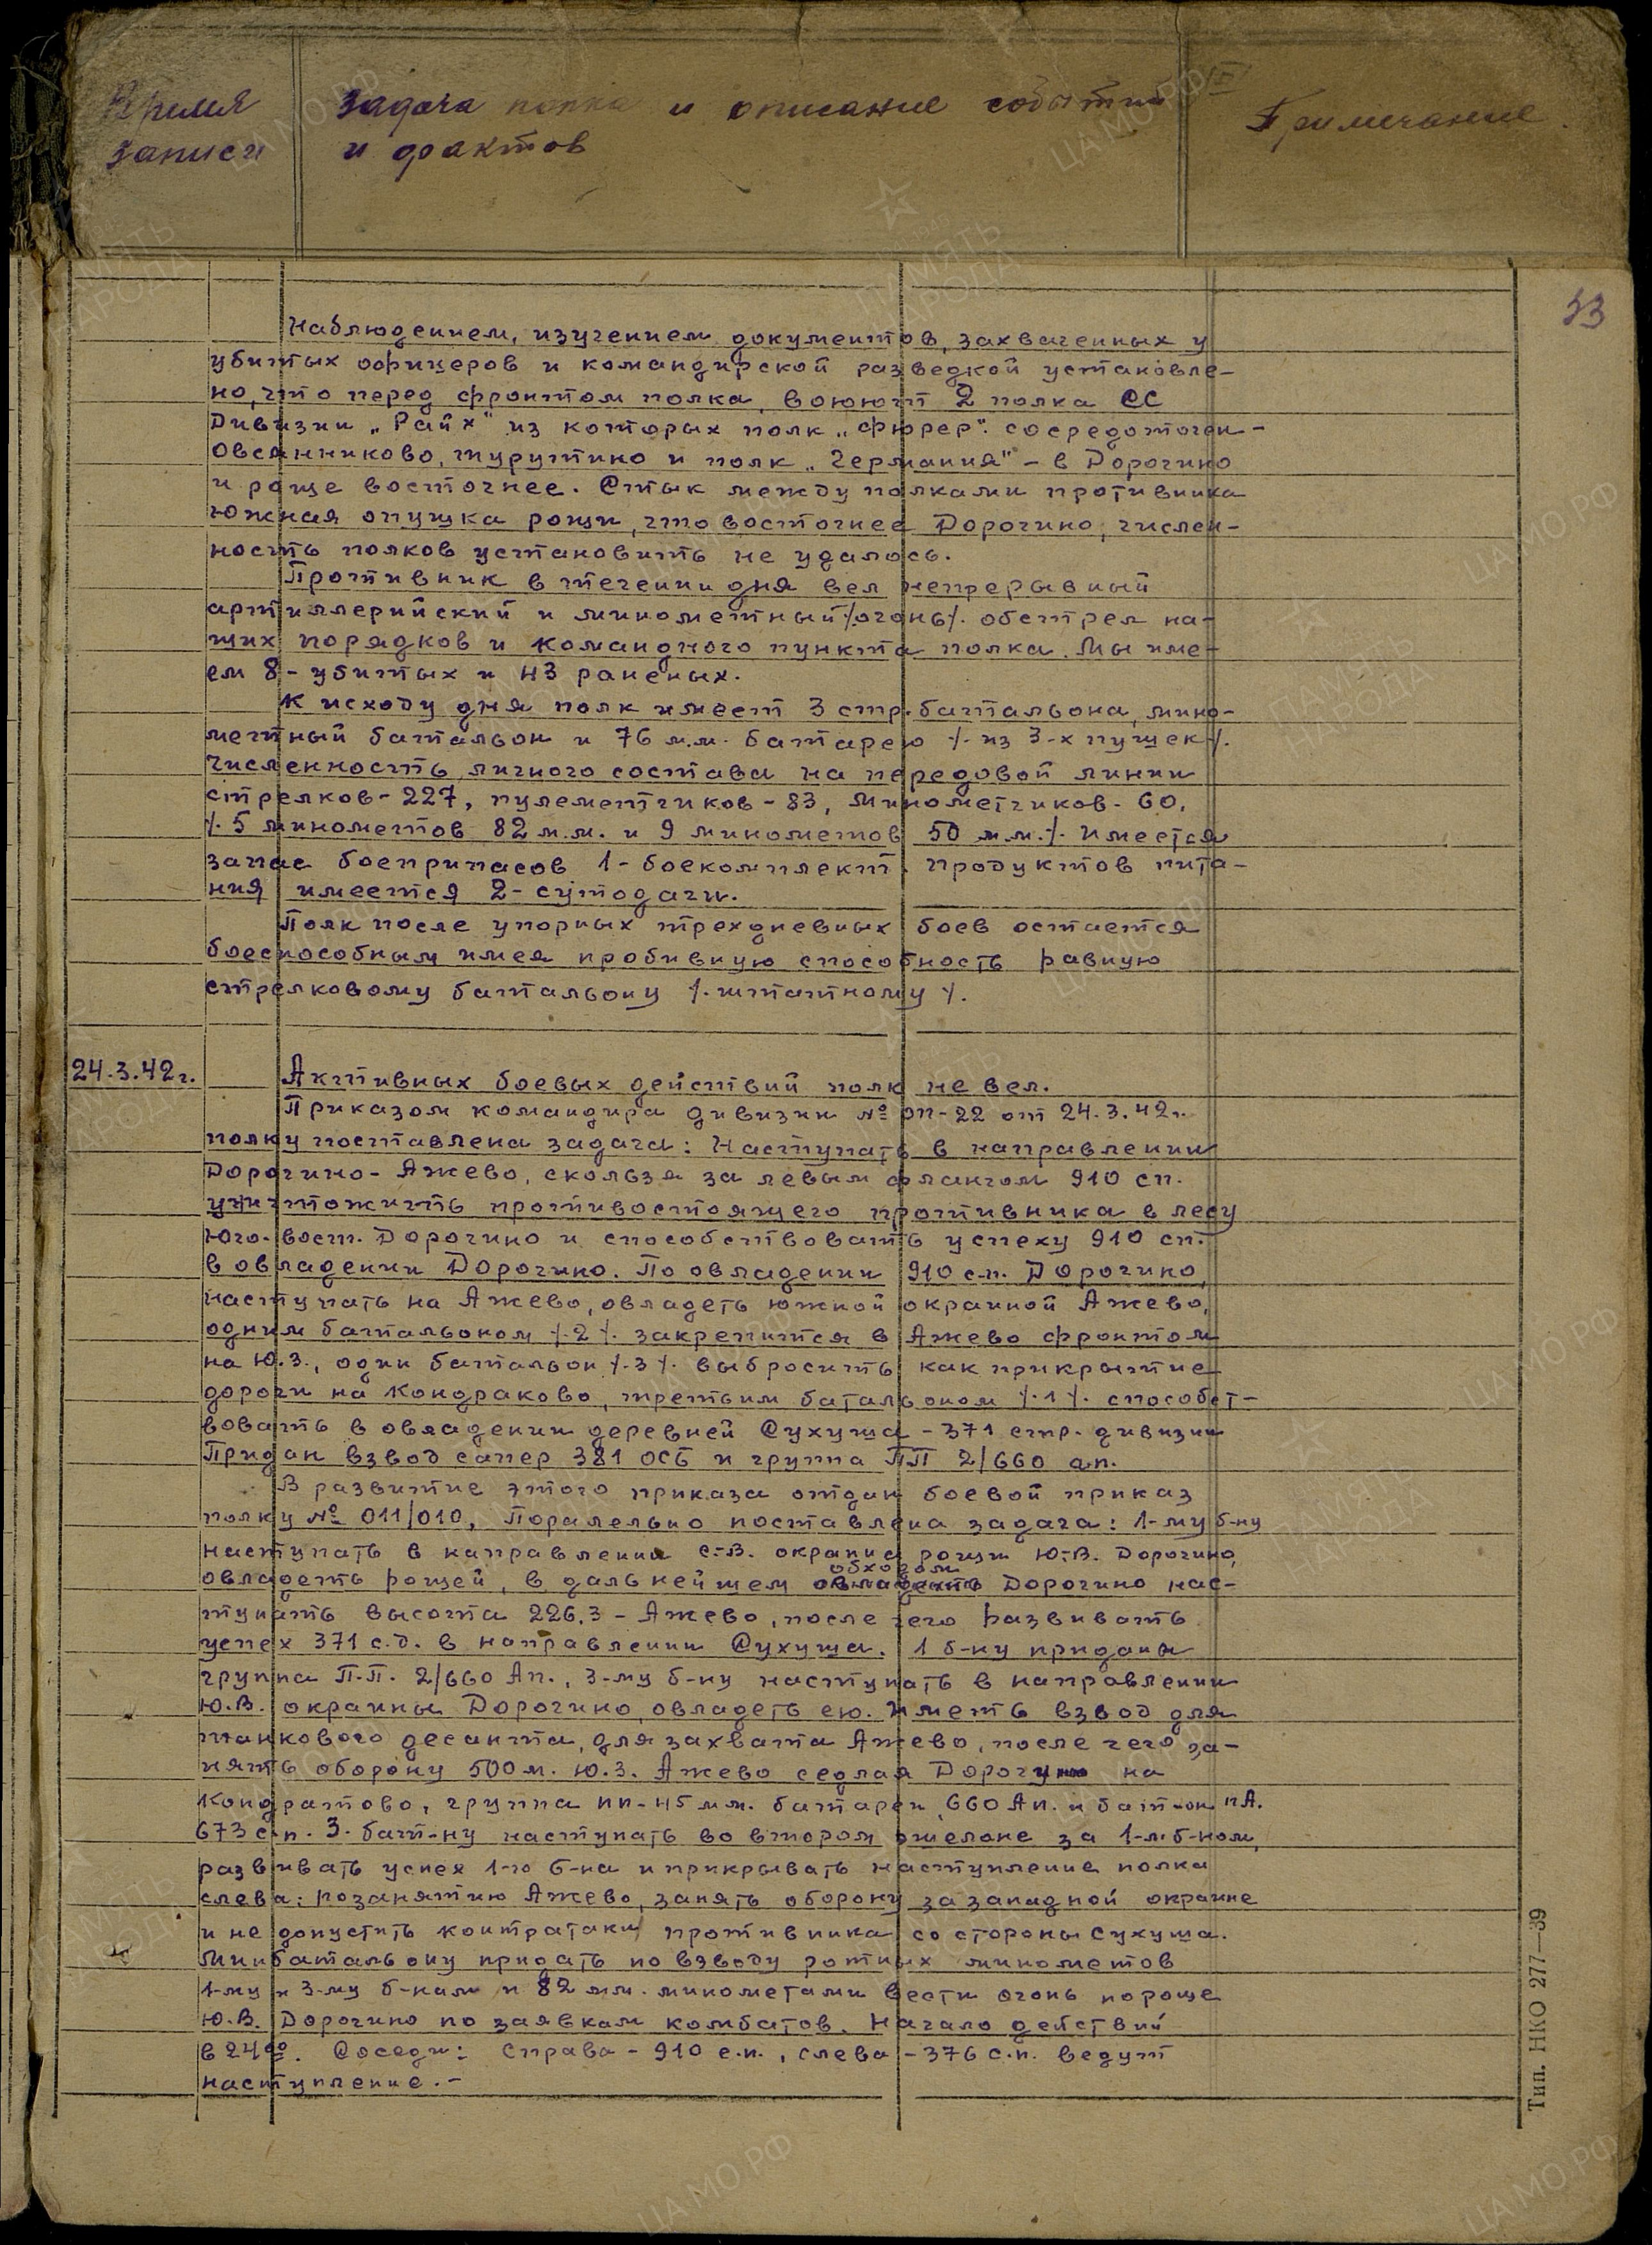 Время записи
Задача полка и описание событий
и фактов
Примечание
Наблюдением, изучением документов, захваченных у
убитых офицеров и командирской разведкой установле-
но, что перед фронтом полка, воюют 2 полка СС
Дивизии „Райх" из которых полк „Фюрер". сосредоточен-
Овсянниково, Турутино и полк „Германия" - в Дорогино
и роще восточнее. Стык между полками противника
южная опушка рощи, что восточнее Дорогино, числен-
ность полков установить не удалось.
Противник в течении дня вел непрерывный
артиллерийский и минометный /.огонь/. обстрел на-
ших порядков и командного пункта полка. Мы име-
ем 8 - убитых и 43 раненых.
К исходу дня полк имеет 3 стр. батальона, мино-
метный батальон и 76 м.м. батарею /. из 3-х пушек/.
Численность личного состава на передовой линии
стрелков - 227, пулеметчиков - 83, Минометчиков - 60,
/. 5 минометов 82 м.м. и 9 минометов 50 м.м./. Имеется
запас боеприпасов 1 - боекомплект. продуктов пита-
ния имеется 2 - сутодачи.
Полк после упорных трехдневных боев остается
боеспособным имея пробивную способность равную
стрелковому батальону /. штатному /.
24.3.42г.
Активных боевых действий полк не вел.
Приказом командира дивизии № оп-22 от 24.3.42г.
полку поставлена задача: Наступать в направлении
Дорогино - Ажево, скользя за левым флангом 910 сп.
уничтожить противостоящего противника в лесу
Юго-вост. Дорогино и способствовать успеху 910 сп.
в овладении Дорогино. По овладении 910 с.п. Дорогино,
наступать на Ажево, овладеть южной окраиной Ажево,
одним батальоном /.2/. закрепится в Ажево фронтом
на Ю.З., один батальон /.3/. выбросить как прикрытие
дороги на Кондраково, третьим батальоном /.1/. способст-
вовать в овладении деревней Сухуша - 371 стр. дивизии
Придан взвод сапер 381 ОСБ и группа ПП 2/660 ап.
В развитие этого приказа отдан боевой приказ
полку № 011/010, Паралельно поставлена задача: 1-му б-ну
наступать в направлении с.-в. окраина рощи Ю.-В. Дорогино,
обходом
овладеть рощей, в дальнейшем овладеть Дорогино нас-
тупать высота 226.3 - Ажево, после чего развивать
успех 371 с.д. в направлении Сухуша. 1 б-ну приданы
группа П.П. 2/660 Ап., 3-му б-ну наступать в направлении
Ю.В. окраины Дорогино, овладеть ею. Иметь взвод для
танкового десанта, для захвата Ажево, после чего за-
нять оборону 500м. Ю.З. Ажево седлая Дорогу на
Кондратово, группа пп - 45 мм. батареи 660 Ап. и бат-он ПА.
673 с.п. 3. бат-ну наступать во втором эшелоне за 1-м б-ном,
развивать успех 1-го б-на и прикрывать наступление полка
слева: по занятию Ажево, занять оборону за западной окраине
и не допустить контратаки противника со стороны Сухуша.
Минбатальону придать по взводу ротных минометов
1-му и 3-му б-нам и 82 мм. минометами вести огонь по роще
Ю.В. Дорогино по заявкам комбатов. Начало действий
в 24⁰⁰. Соседи: Справа - 910 с.п., слева - 376 с.п. ведут
наступление. -
Тип. НКО 277—39
ЦАМО.РФ
ПАМЯТЬ НАРОДА